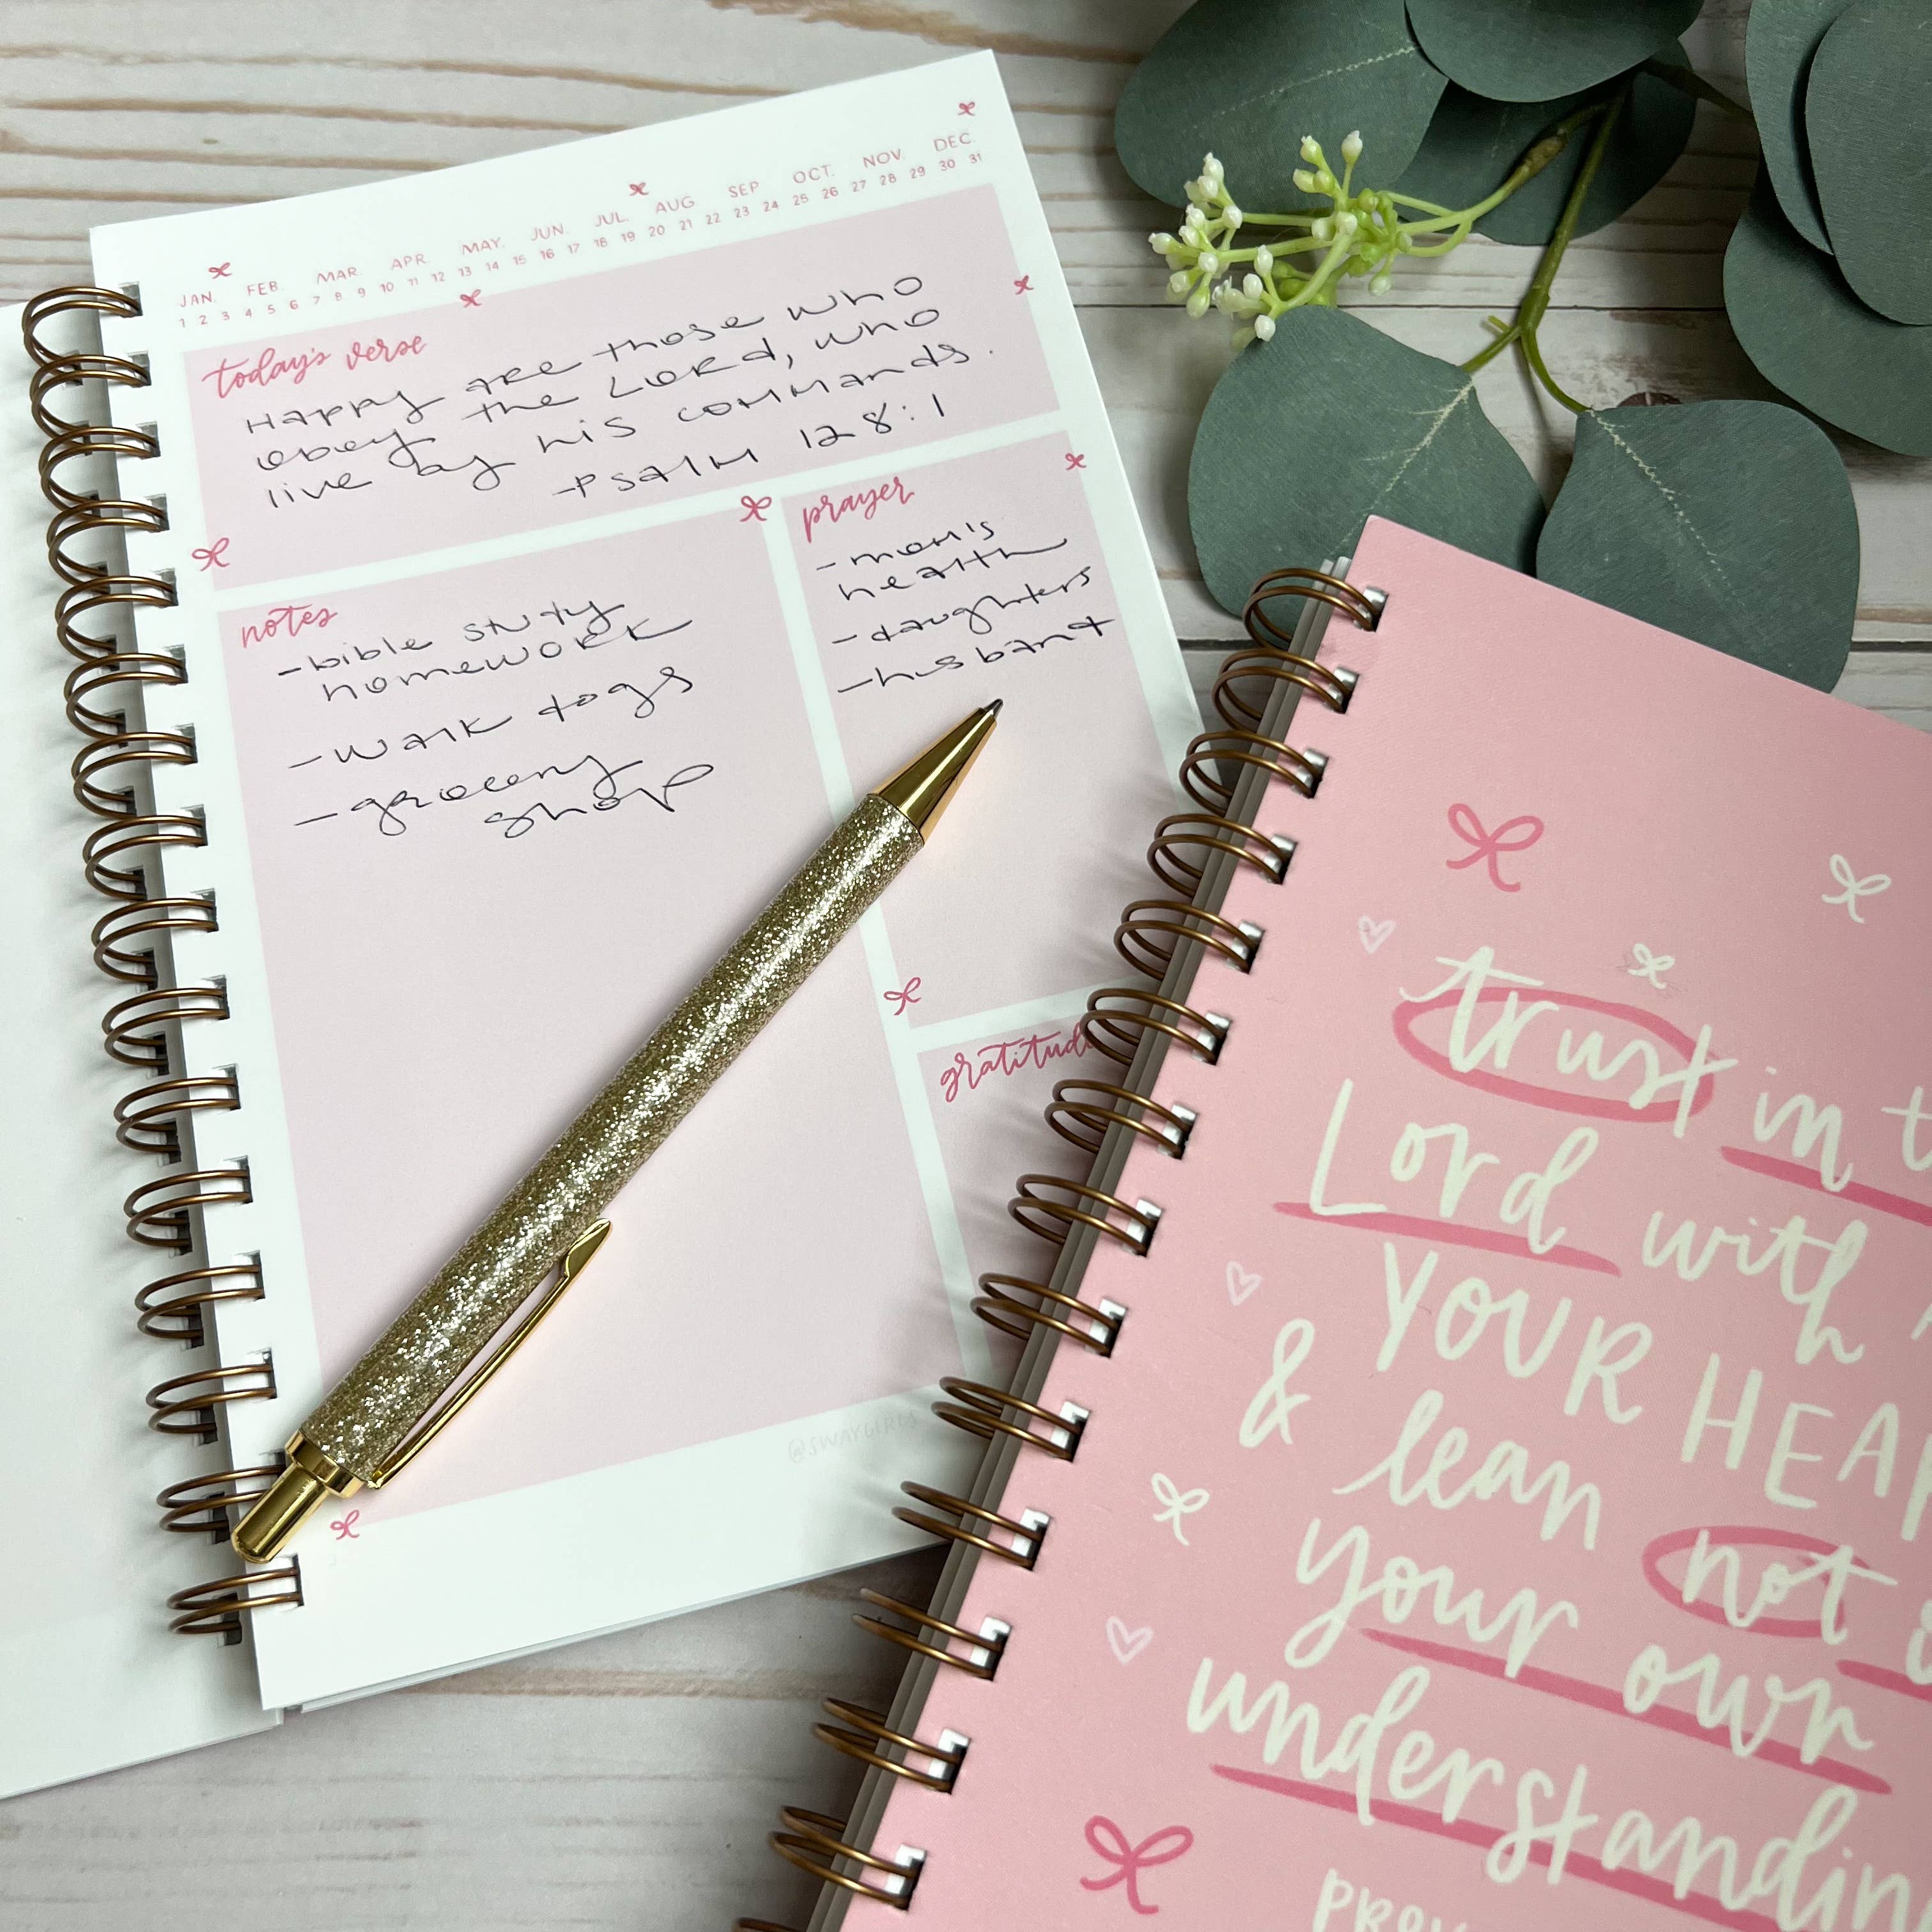 JAN. FEB. MAR. APR. MAY. JUN. JUL. AUG. SEP. OCT. NOV. DEC.
1 2 3 4 5 6 7 8 9 10 11 12 13 14 15 16 17 18 19 20 21 22 23 24 25 26 27 28 29 30 31
today's verse
Happy are those who
obey the Lord, who
live by his commands.
-Psalm 128:1
notes
-bible study
homework
-walk dogs
-grocery
shop
prayer
-mom's
health
-daughters
-husband
gratitude
@SWAYGIRLS
trust in
Lord with
YOUR
& lean
your own
not